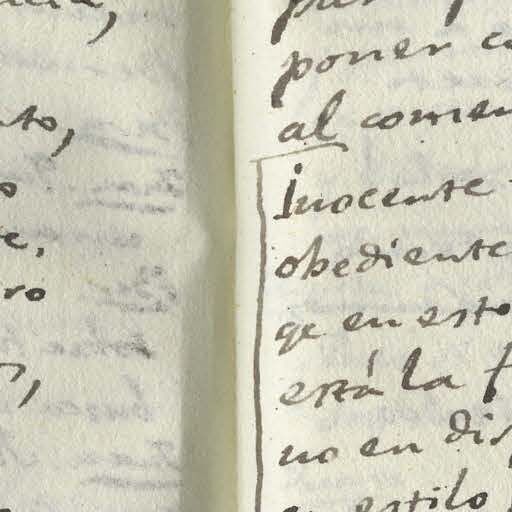 nto,
ro
poner
al comen
Inocente
obediente
qe en esto
está la f
no en dis
estilo